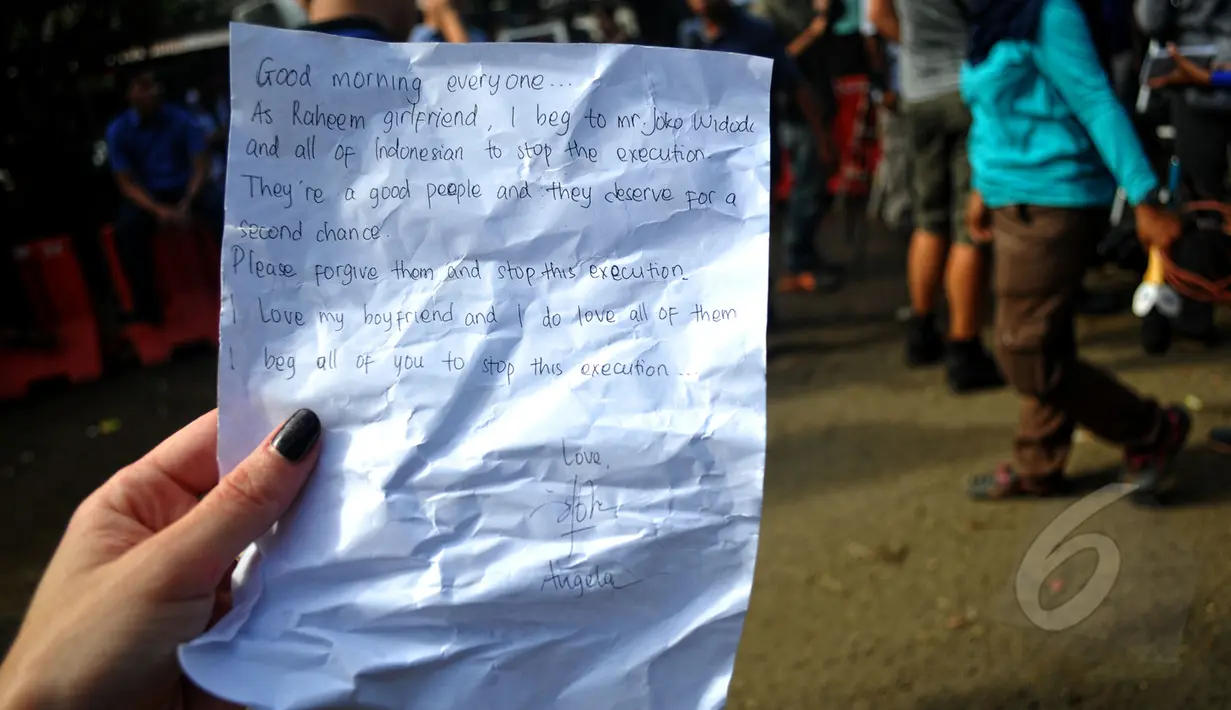 Good morning everyone...
As Raheem girlfriend, I beg to mr. Joko Widodo
and all of Indonesian to stop the execution.
They're a good people and they deserve for a
second chance.
Please forgive them and stop this execution.
I Love my boyfriend and I do love all of them
I beg all of you to stop this execution...
Love,
Angela
6